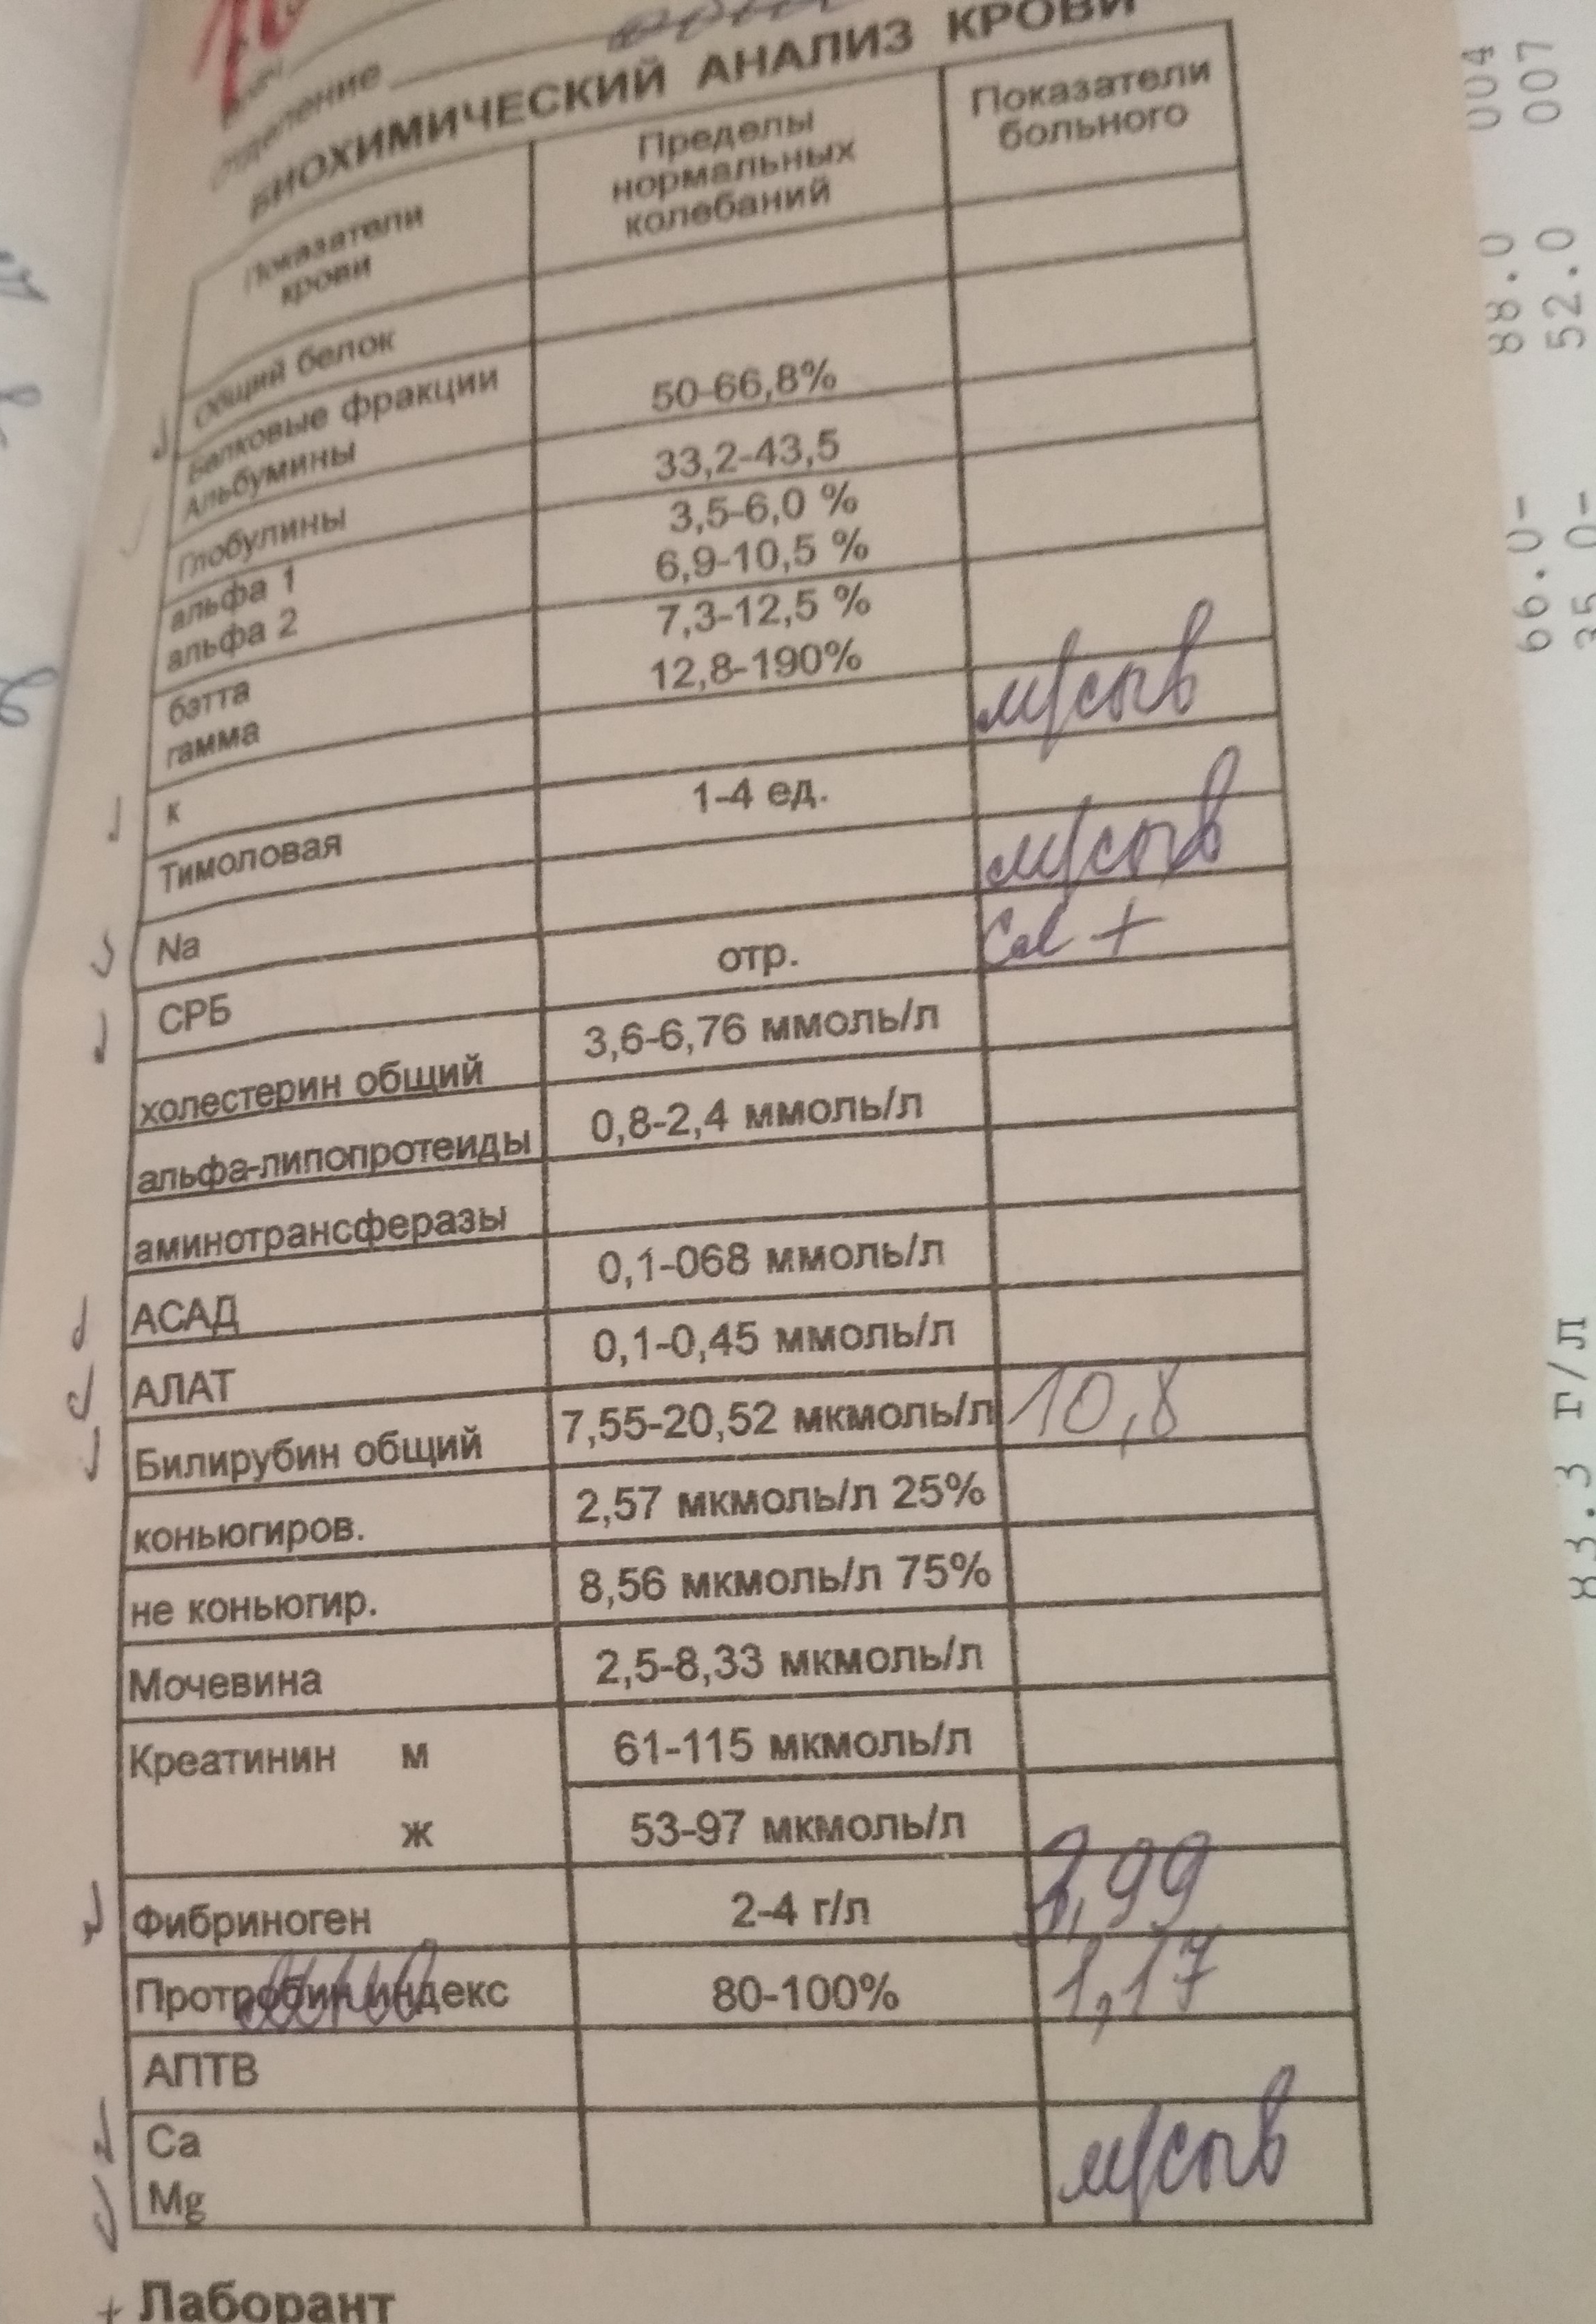 отделение
БИОХИМИЧЕСКИЙ АНАЛИЗ КРОВИ
Показатели крови
Пределы нормальных колебаний
Показатели больного
Общий белок
Белковые фракции
Альбумины 50-66,8%
Глобулины 33,2-43,5
альфа 1 3,5-6,0 %
альфа 2 6,9-10,5 %
бэтта 7,3-12,5 %
гамма 12,8-190%
К м/сыв
Тимоловая 1-4 ед.
Na м/сыв
СРБ отр. +
холестерин общий 3,6-6,76 ммоль/л
альфа-липопротеиды 0,8-2,4 ммоль/л
аминотрансферазы
АСАД 0,1-068 ммоль/л
АЛАТ 0,1-0,45 ммоль/л
Билирубин общий 7,55-20,52 мкмоль/л 10,8
коньюгиров. 2,57 мкмоль/л 25%
не коньюгир. 8,56 мкмоль/л 75%
Мочевина 2,5-8,33 мкмоль/л
Креатинин м 61-115 мкмоль/л
ж 53-97 мкмоль/л
Фибриноген 2-4 г/л
Протробин индекс 80-100% 1,17
АПТВ
Ca м/сыв
Mg
+ Лаборант
66.0- 88.0 004
35.0- 52.0 007
83.3 г/л